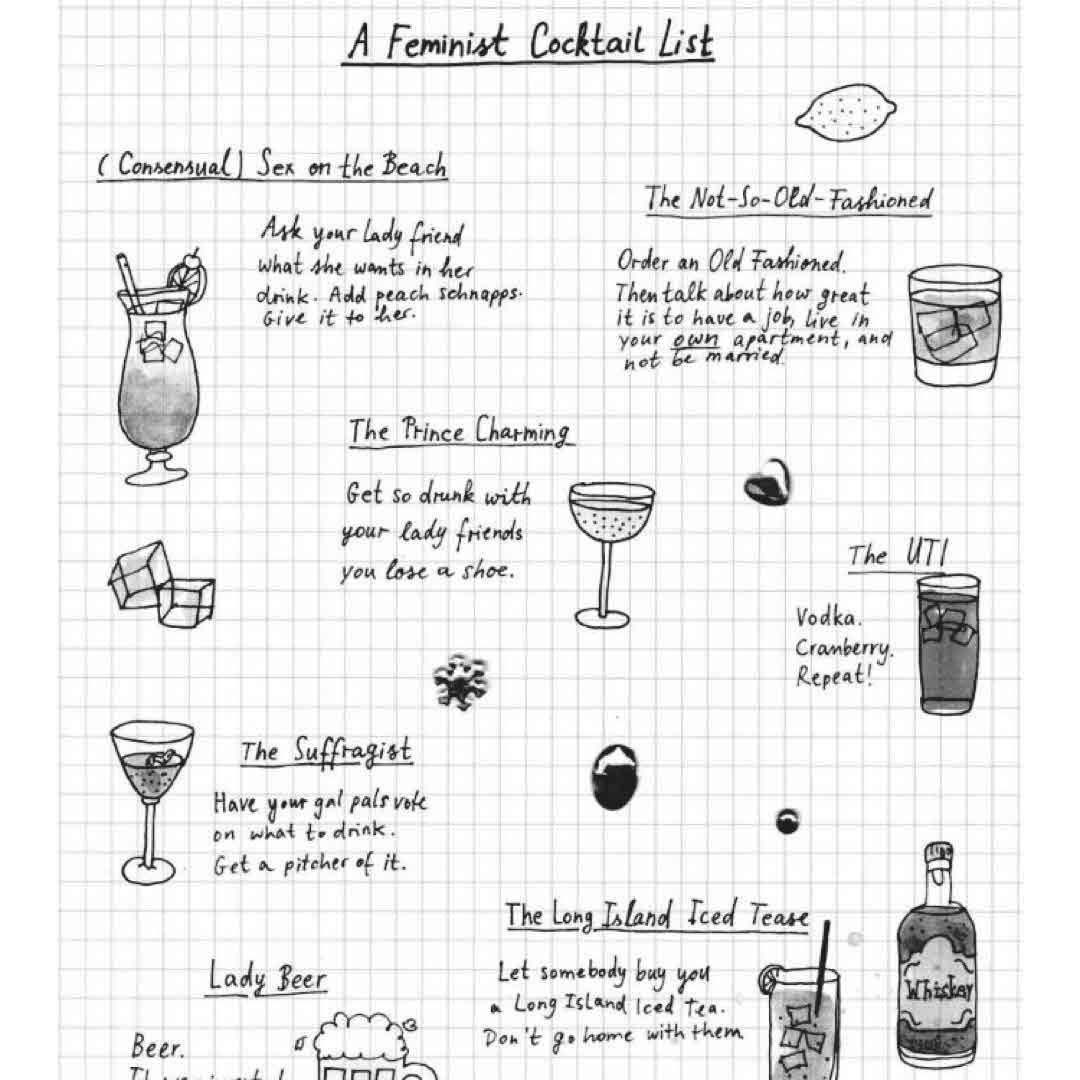 A Feminist Cocktail List
(Consensual) Sex on the Beach
Ask your lady friend
what she wants in her
drink. Add peach schnapps.
Give it to her.
The Not-So-Old-Fashioned
Order an Old Fashioned.
Then talk about how great
it is to have a job, live in
your own apartment, and
not be married.
The Prince Charming
Get so drunk with
your lady friends
you lose a shoe.
The UTI
Vodka.
Cranberry.
Repeat!
The Suffragist
Have your gal pals vote
on what to drink.
Get a pitcher of it.
The Long Island Iced Tease
Let somebody buy you
a Long Island Iced Tea.
Don't go home with them
Whiskey
Lady Beer
Beer.